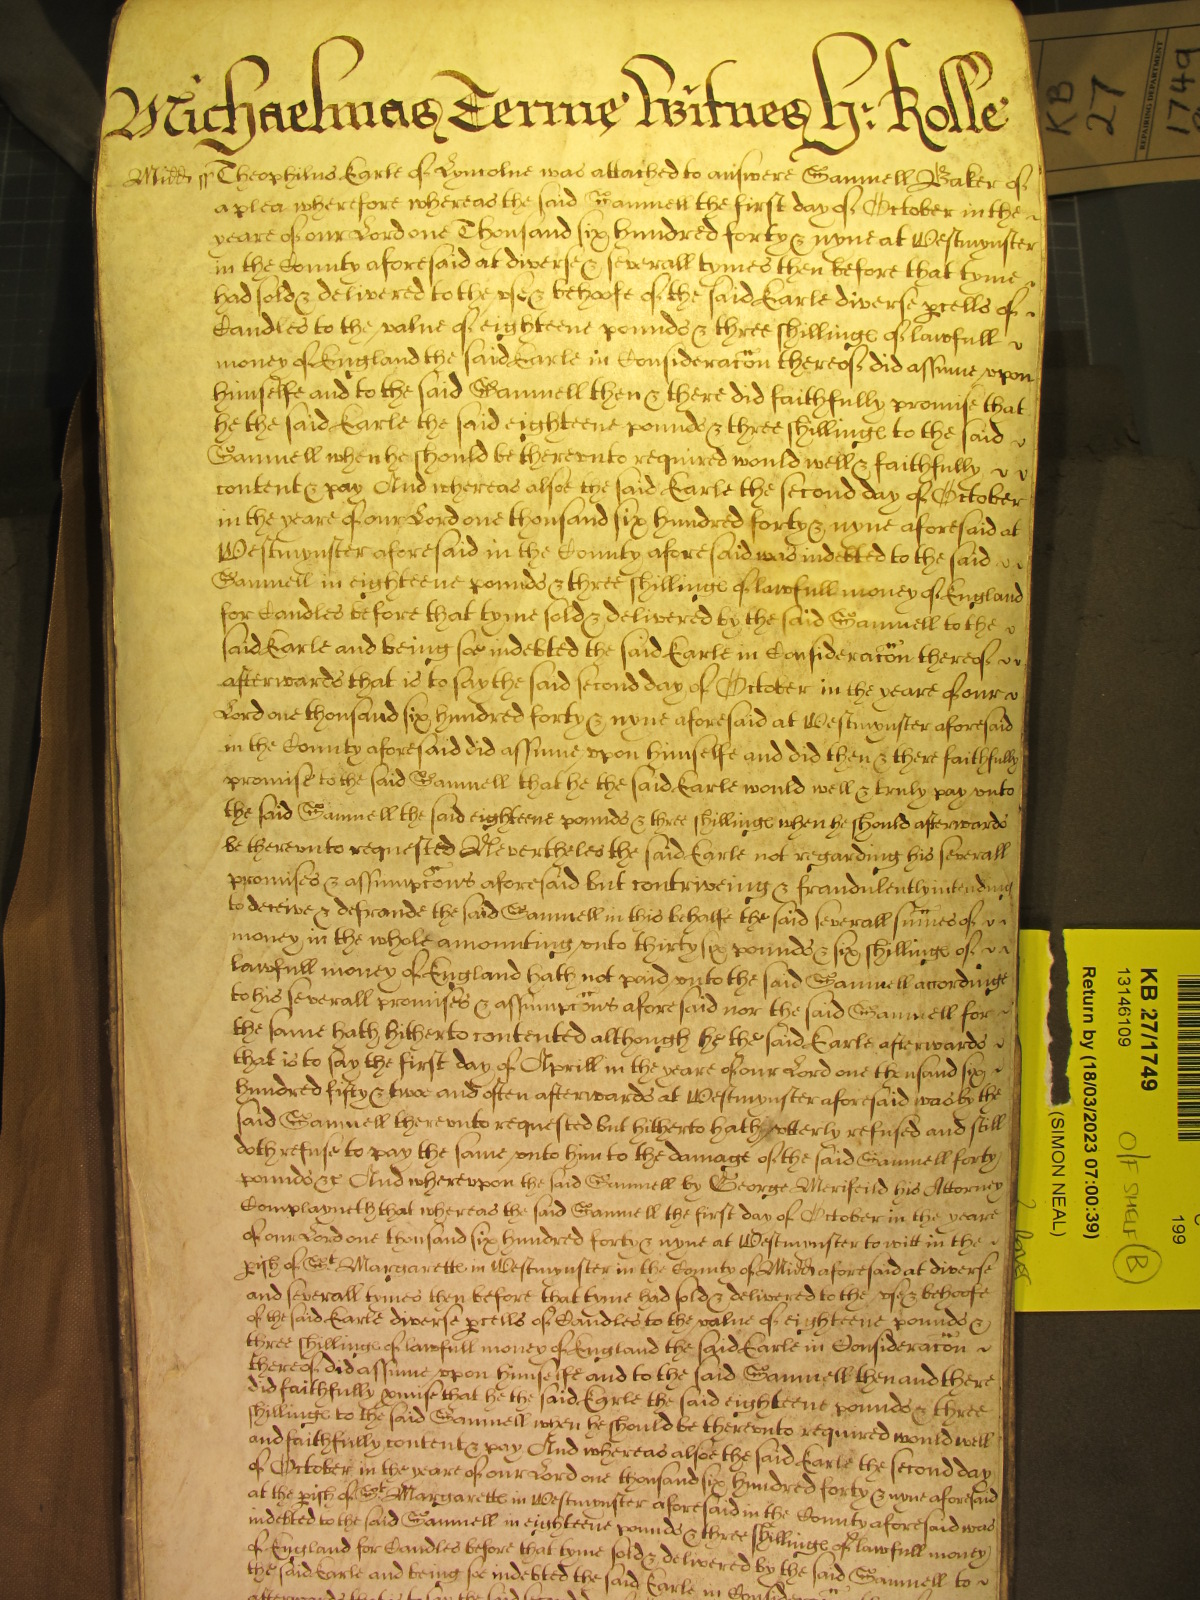 Michaelmas Terme Witnes H: Rolle
Midd ss Theophilus Earle of Lyncolne was attached to answere Samuell Baker of
a plea wherefore whereas the said Samuell the first day of October in the
yeare of our Lord one Thousand six hundred forty & nyne at Westmynster
in the County aforesaid at diverse & severall tymes then before that tyme
had sold & delivered to the vse & behoofe of the said Earle diverse pcells of
Candles to the value of eighteene pounds & three shillings of lawfull
money of England the said Earle in Consideracon thereof did assume vpon
himselfe and to the said Samuell then & there did faithfully promise that
he the said Earle the said eighteene pounds & three shillings to the said
Samuell when he should be therevnto required would well & faithfully
content & pay And whereas alsoe the said Earle the second day of October
in the yeare of our Lord one thousand six hundred forty & nyne aforesaid at
Westmynster aforesaid in the County aforesaid was indebted to the said
Samuell in eighteene pounds & three shillings of lawfull money of England
for Candles before that tyme sold & delivered by the said Samuell to the
said Earle and being soe indebted the said Earle in Consideracon thereof
afterwards that is to say the said second day of October in the yeare of our
Lord one thousand six hundred forty & nyne aforesaid at Westmynster aforesaid
in the County aforesaid did assume vpon himselfe and did then & there faithfully
promise to the said Samuell that he the said Earle would well & truly pay vnto
the said Samuell the said eighteene pounds & three shillings when he should afterwards
be therevnto requested Nevertheles the said Earle not regarding his severall
promises & assumpcons aforesaid but contriveing & fraudulently intending
to deceive & defraude the said Samuell in this behalfe the said severall sumes of
money in the whole amounting vnto thirty six pounds & six shillings of
lawfull money of England hath not paid vnto the said Samuell accordinge
to his severall promises & assumpcons aforesaid nor the said Samuell for
the same hath hitherto contented although he the said Earle afterwards
that is to say the first day of Aprill in the yeare of our Lord one thousand six
hundred fifty & twoe and often afterwards at Westmynster aforesaid was by the
said Samuell therevnto requested but hitherto hath vtterly refused and still
doth refuse to pay the same vnto him to the damage of the said Samuell forty
pounds &c And wherevpon the said Samuell by George Merifeild his Attorney
Complayneth that whereas the said Samuell the first day of October in the yeare
of our Lord one thousand six hundred forty & nyne at Westmynster to witt in the
pish of St Margaretts in Westmynster in the County of Midd aforesaid at diverse
and severall tymes then before that tyme had sold & delivered to the vse & behoofe
of the said Earle diverse pcells of Candles to the value of eighteene pounds &
three shillings of lawfull money of England the said Earle in Consideracon
thereof did assume vpon himselfe and to the said Samuell then and there
did faithfully pmise that he the said Earle the said eighteene pounds & three
shillings to the said Samuell when he should be therevnto required would well
and faithfully content & pay And whereas alsoe the said Earle the second day
of October in the yeare of our Lord one thousand six hundred forty & nyne aforesaid
at the pish of St Margaretts in Westmynster aforesaid in the County aforesaid was
indebted to the said Samuell in eighteene pounds & three shillings of lawfull money
of England for Candles before that tyme sold & delivered by the said Samuell to
the said Earle and being soe indebted the said Earle in Consideracon
afterwards that is to say the said second
KB
27
1749
REPAIRING DEPARTMENT
KB 27/1749
13146109
Return by (18/03/2023 07:00:39)
(SIMON NEAL)
O/F SHELF B
199